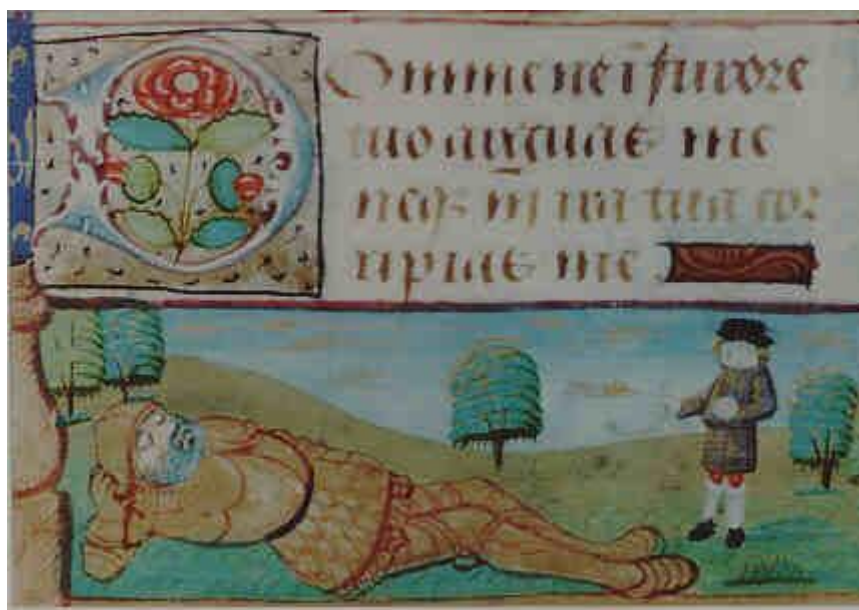 Domine ne ĩ furore
tuo arguas me
neqз in ira tua cor
ripias me